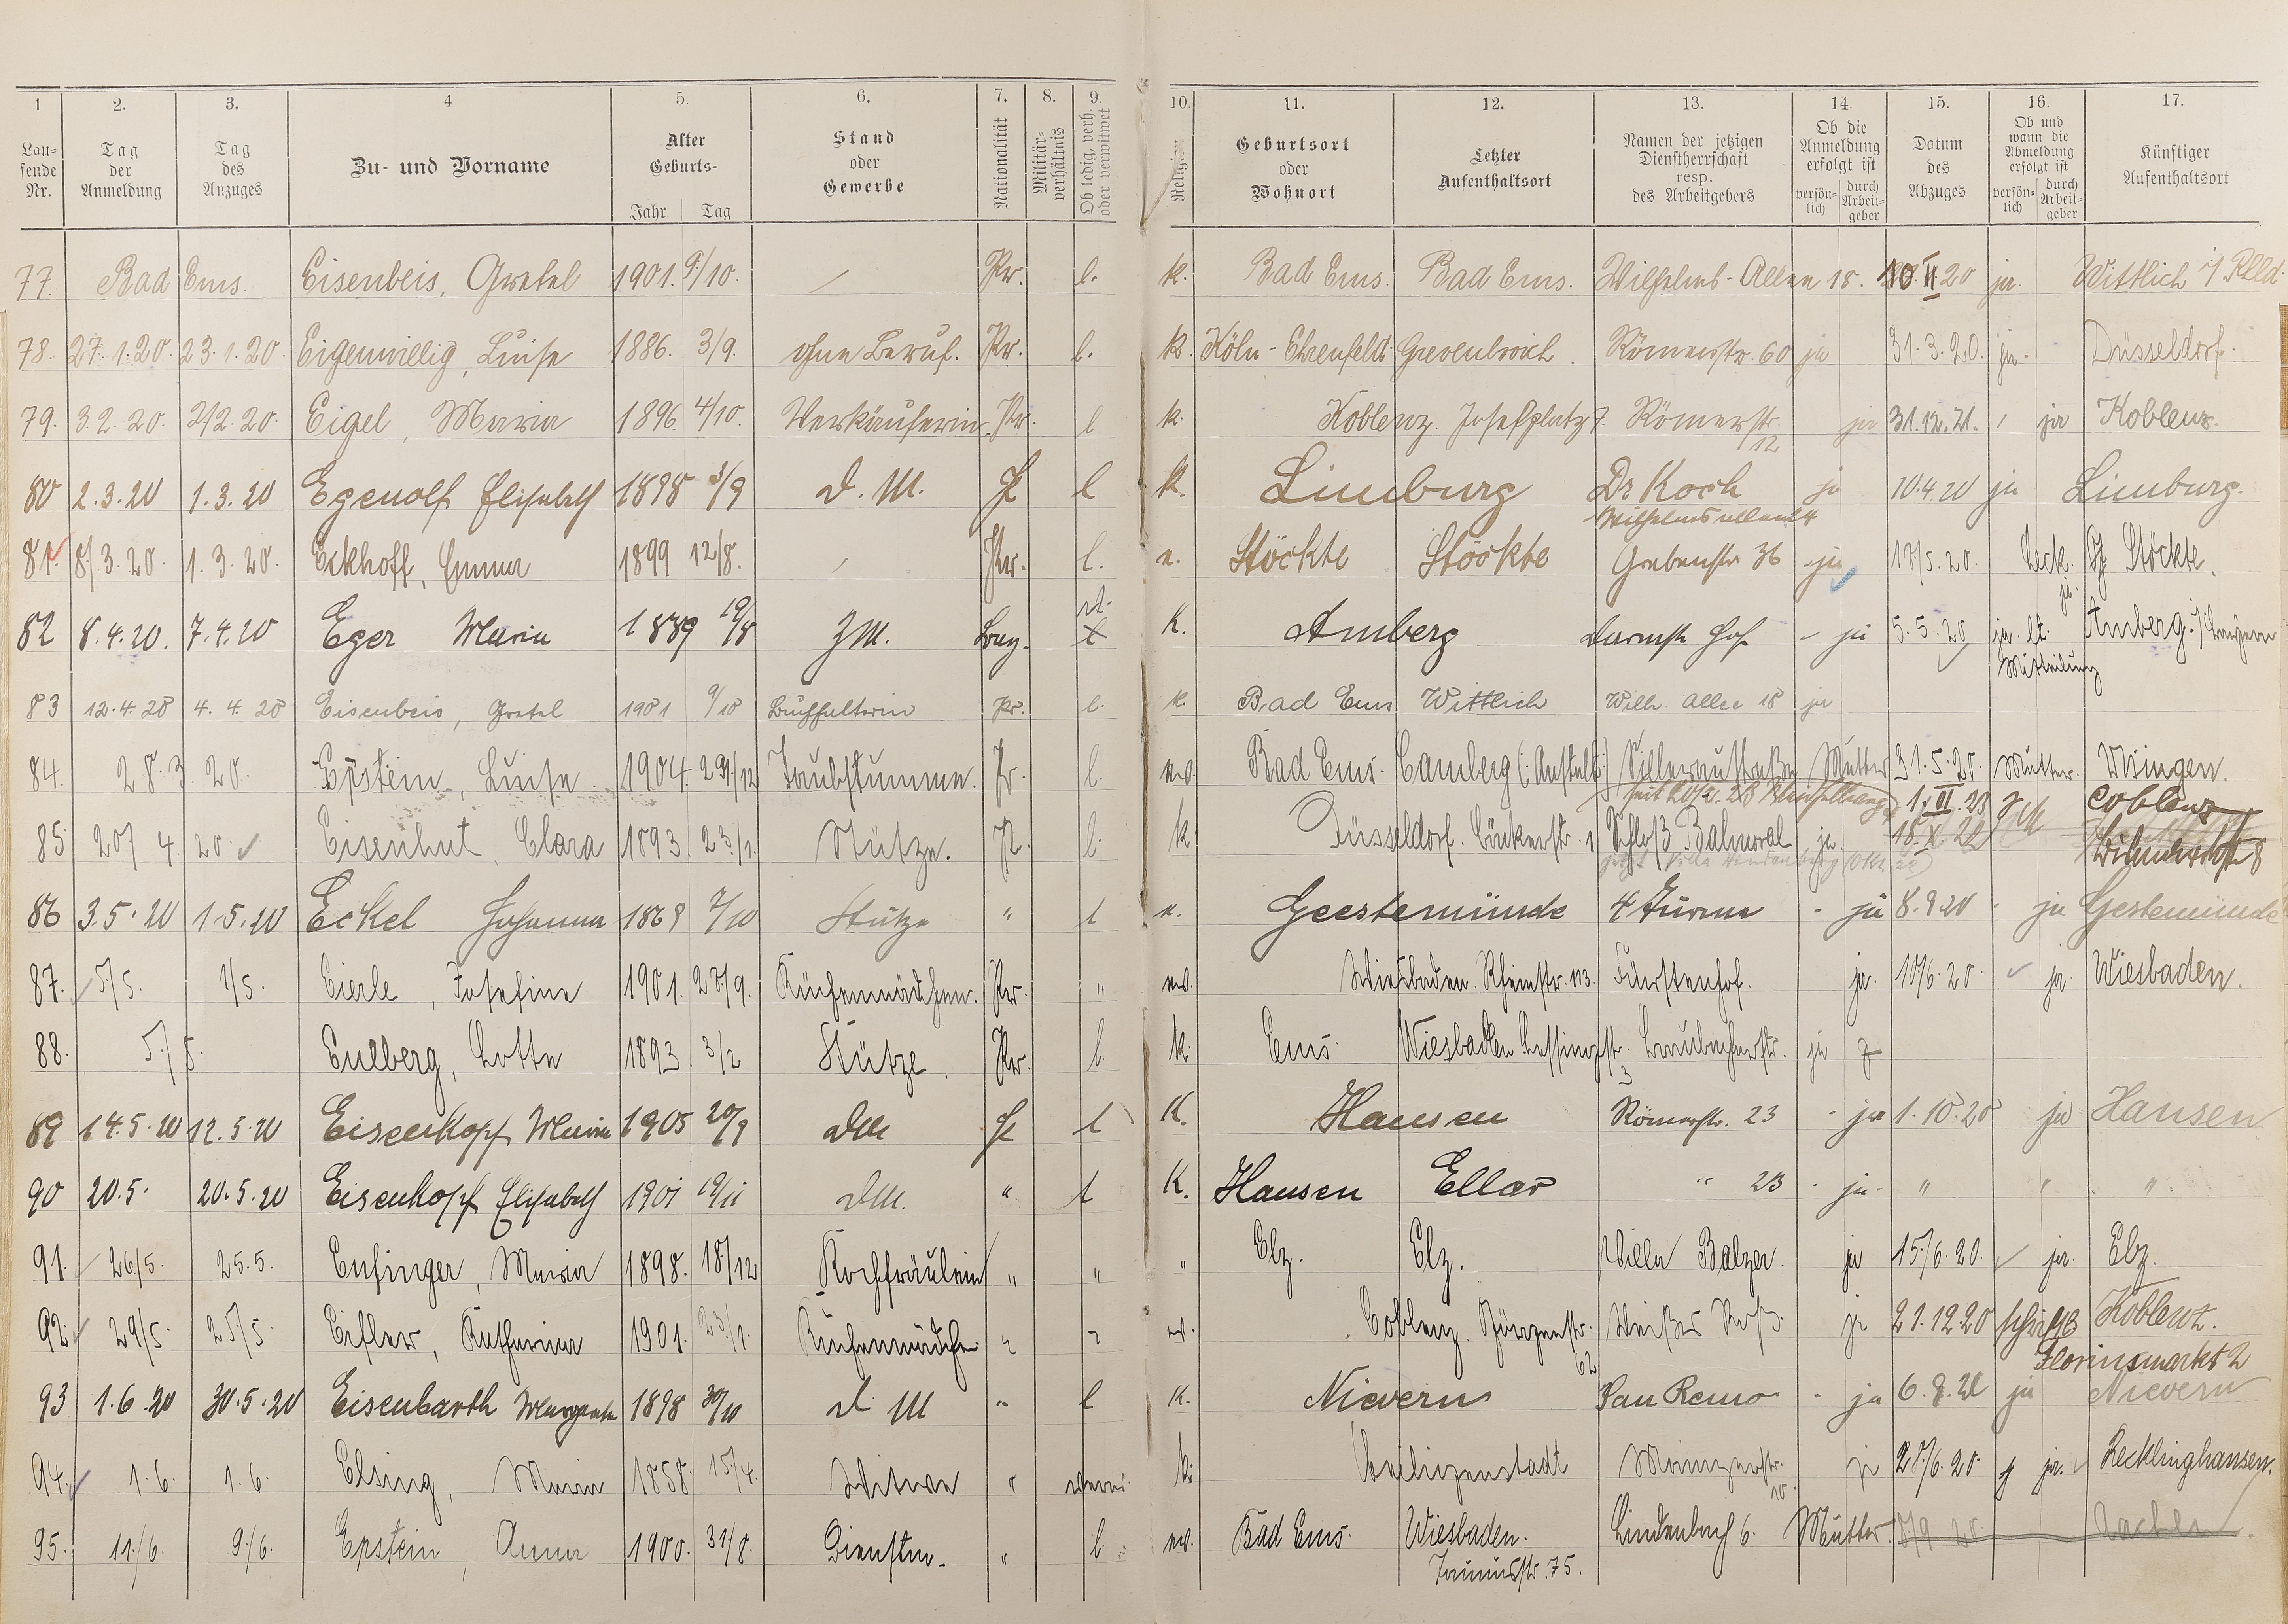 1 2. 3. 4 5. 6. 7. 8. 9. 10. 11. 12. 13. 14. 15. 16. 17.
Lau-
fende
Nr.
Tag
der
Anmeldung
Tag
des
Anzuges
Zu- und Vorname
Alter
Geburts-
Jahr Tag
Stand
oder
Gewerbe
Nationalität
Militär-
verhältnis
Ob ledig, verh.
oder verwitwet
Religion
Geburtsort
oder
Wohnort
Letzter
Aufenthaltsort
Namen der jetzigen
Dienstherrschaft
resp.
des Arbeitgebers
Ob die
Anmeldung
erfolgt ist
persön-
lich
durch
Arbeit-
geber
Datum
des
Abzuges
Ob und
wann die
Abmeldung
erfolgt ist
persön-
lich
durch
Arbeit-
geber
Künftiger
Aufenthaltsort
77. Bad Ems. Eisenbeis, Gretel 1901. 9/10. / Pr. l. k. Bad Ems. Bad Ems. Wilhelms-Allee 18. 10. II 20 ja. Wittlich
78. 27.1.20. 23.1.20. Eigenwillig, Luise 1886. 3/9. ohne Beruf. Pr. l. k. Köln-Ehrenfeld. Grevenbroich. Römerstr. 60 ja 31.3.20. ja. Düsseldorf.
79. 3.2.20. 2/2.20. Eigel, Maria 1896. 4/10. Verkäuferin. Pr. l k. Koblenz. Josefplatz 7. Römerstr. 12 ja 31.12.21. ja Koblenz.
80 2.3.20 1.3.20 Egenolf Elisabeth 1898 3/9 D.M. l k. Limburg Dr Koch ja 10.4.20 ja Limburg.
Wilhelmsallee 4
81. 8/3.20. 1.3.20. Eckhoff, Emma 1899 12/8. / Pr. l. e. Stöckte Stöckte Grabenstr 36 ja 17/5.20. ja. Stöckte.
82 8.4.20. 7.4.20 Eger Maria 1889 19/8 ZM. Bay. k. Amberg Darmst. Hof - ja 5.5.20 ja. lt. Mitteilung Amberg.
83 12.4.20 4.4.20 Eisenbeis, Gretel 1901 9/10 Buchhalterin Pr. l. k. Bad Ems Wittlich Wilh. Allee 18 ja
84. 28.3.20. Epstein, Luise. 1904. 29/12 Taubstumme. Pr. l. Bad Ems. Camberg (:Anstalt:) Mutter 31.5.20. Mutter. Usingen.
85. 20/4 20. Eisenhut, Clara 1893. 23/1. Stütze. Pr. l. k. Düsseldorf. 1 Schloß Balmoral ja 1. VI. 23 Coblenz
18. X. 20
86 3.5.20 1.5.20 Eckel Johanna 1869 7/10 Stütze " l e. Geestemünde 4 Türme - ja 8.9.20 - ja Gestemünde
87. 5/5. 1/5. Eierle, Josefine 1901. 27/9. Küchenmädchen. Pr. " Wiesbaden. Rheinstr. 113. Fürstenhof. ja. 10/6.20. ja. Wiesbaden.
88. 5/5. Eulberg, Lotte 1893. 3/2 Stütze. Pr. l. k. Ems. Wiesbaden Lessingstr. 3 Braubacherstr. ja
89 14.5.20 12.5.20 Eisenkopf Maria 1905 20/9 DM l K. Hausen Römerstr. 23 - ja 1.10.20 ja Hausen
90 20.5. 20.5.20 Eisenkopf Elisabeth 1901 19/11 DM. " l K. Hausen Ellar " 23 - ja - " " "
91. 26/5. 25.5. Enfinger, Maria 1898. 18/12 Kochfräulein " " " Elz. Elz. Villa Balzer. ja 15/6.20. ja. Elz.
92. 29/5. 25/5. Eifler, Katharina 1901. 23/1. Küchenmädchen " " Coblenz. 62 Weißes Roß. ja 21.12.20 Koblenz.
Florinsmarkt 2
93 1.6.20 30.5.20 Eisenbarth Margarete 1898 30/10 D. M " l k. Nievern San Remo - ja 6.9.20 ja Nievern
94. 1.6. 1.6. Elsing, Maria 1858. 15/4. Witwe " verw. k. Heiligenstadt Mainzerstr. 10. ja 27/6.20. ja. Recklinghausen.
95. 11/6. 9/6. Epstein, Anna 1900. 31/8. Dienstm. " l. Bad Ems. Wiesbaden. Lindenbach 6. Mutter. Aachen
Taunusstr. 75.